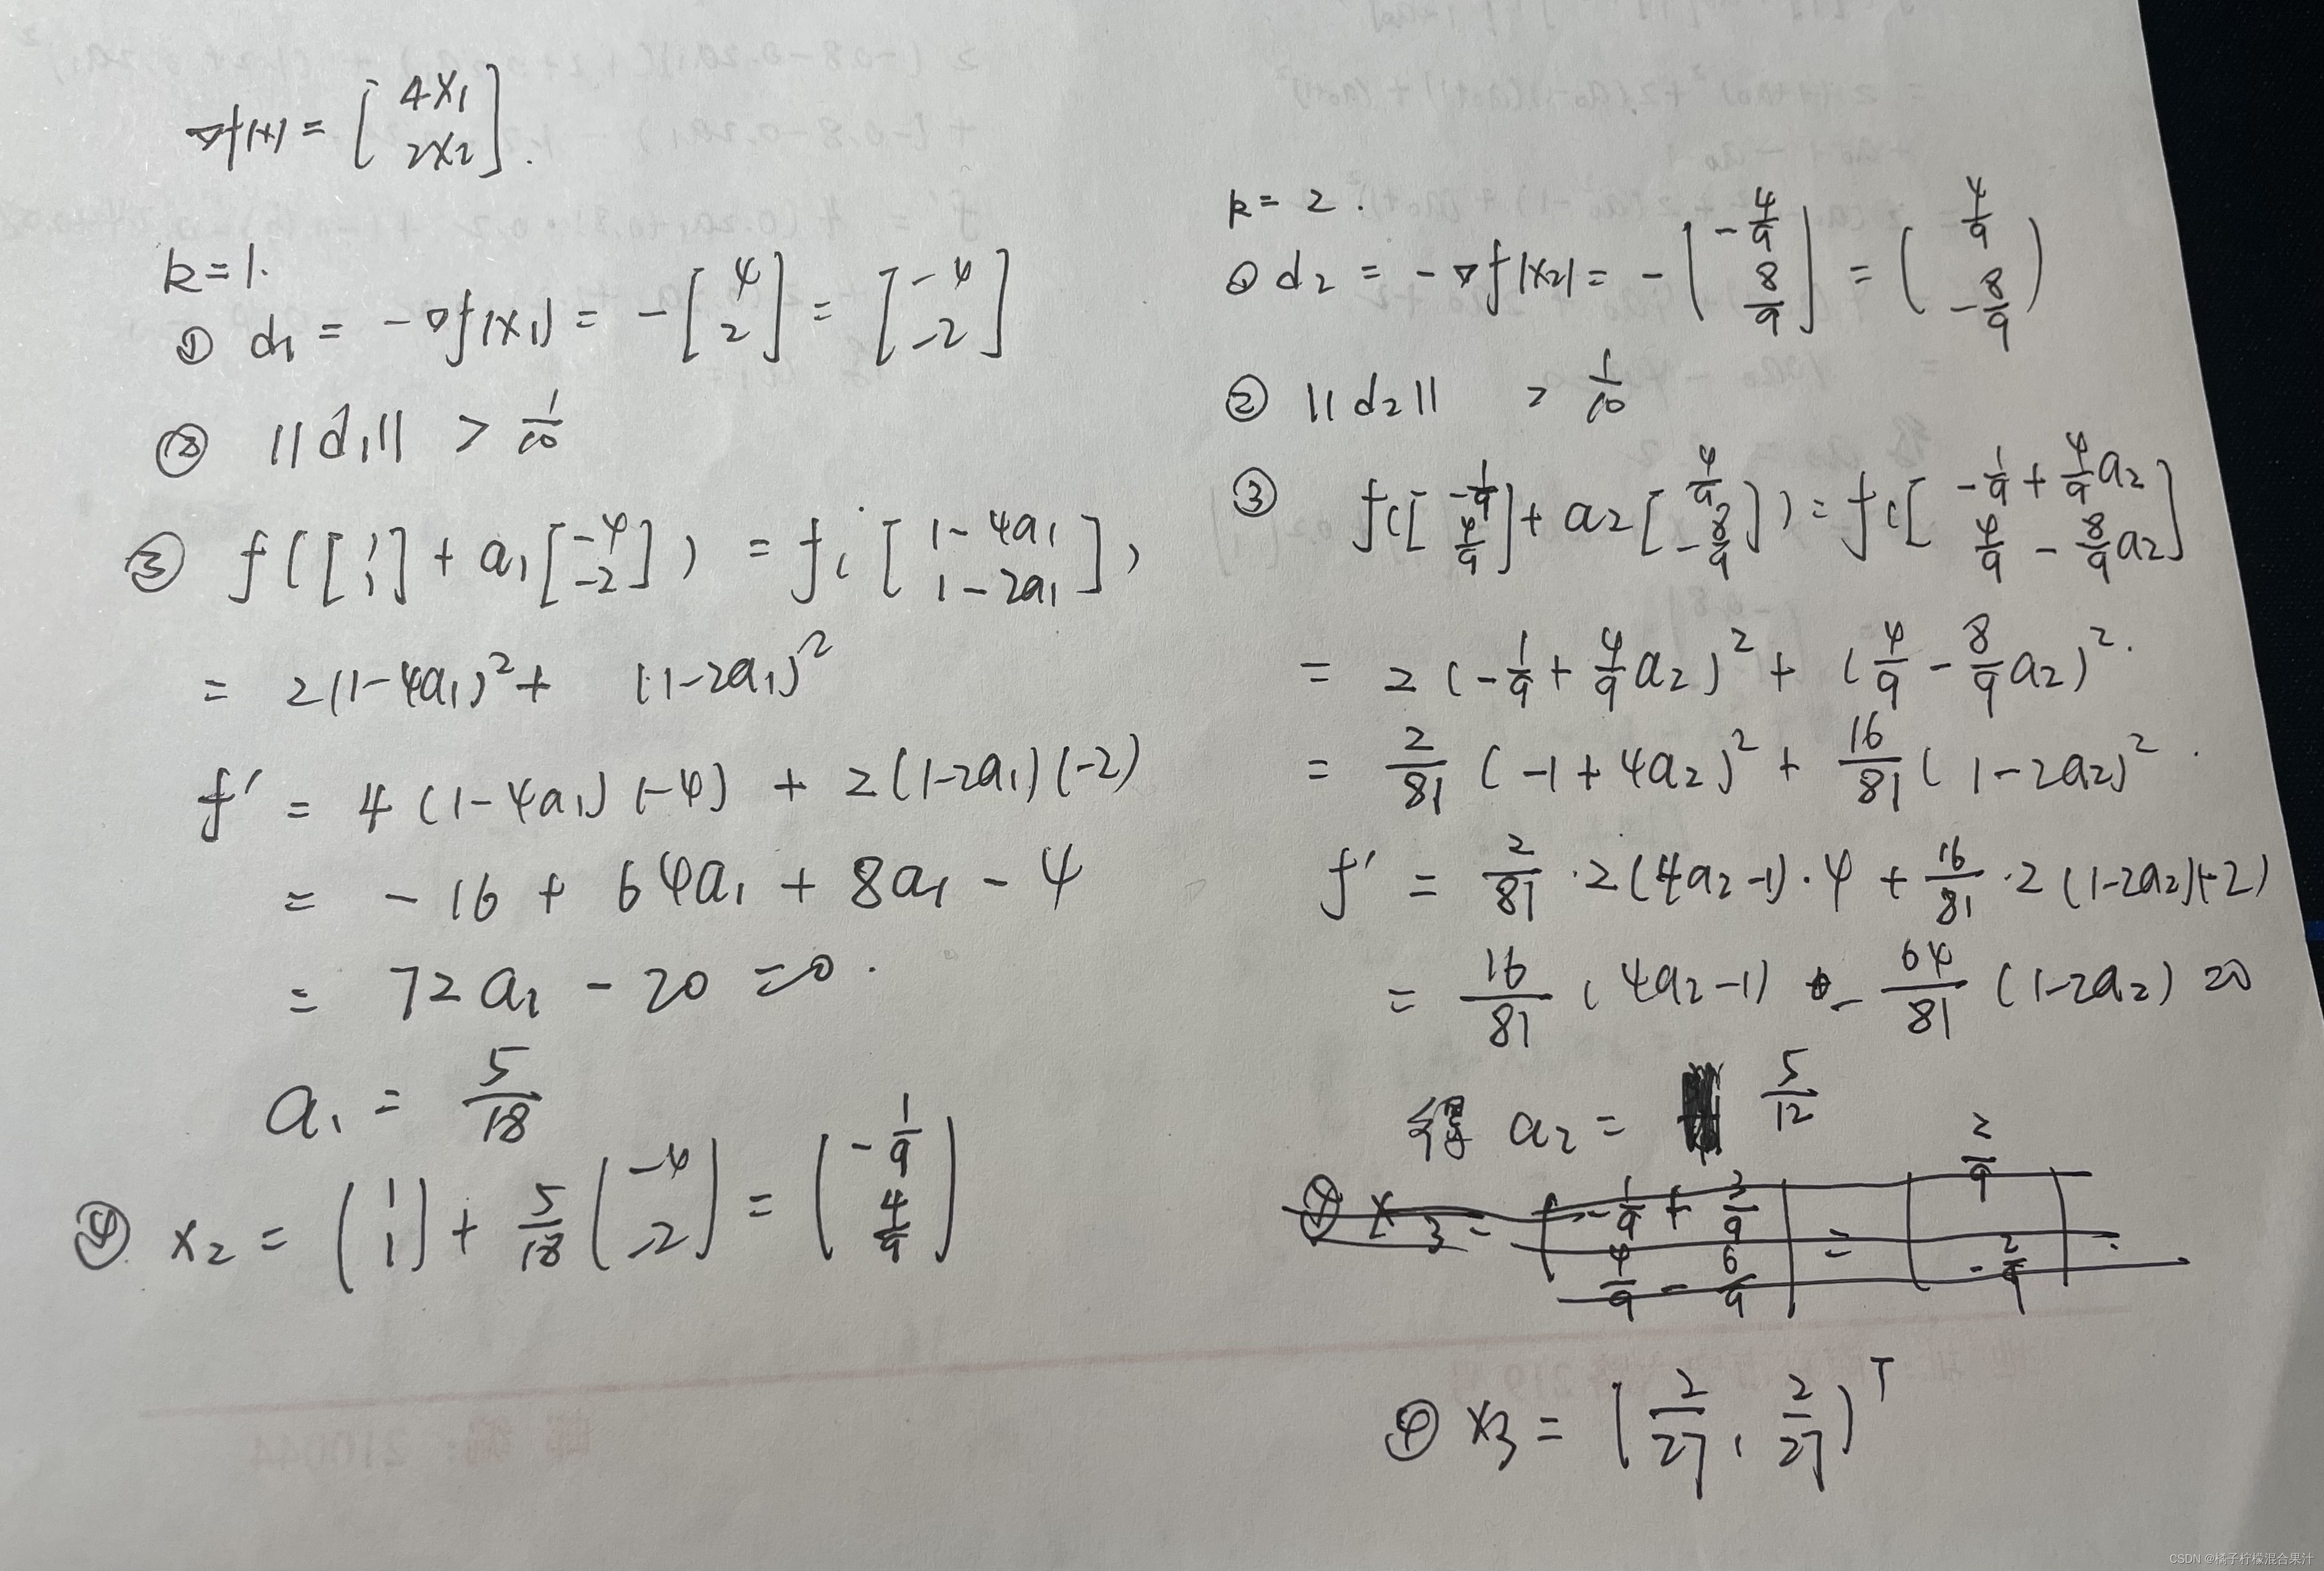 ∇f(x) = [4x₁ 2x₂].
k=1.
① d₁ = -∇f(x₁) = -[4 2] = [-4 -2]
② ||d₁|| > 1/10
③ f([1 1] + a₁[-4 -2]) = f([1-4a₁ 1-2a₁])
= 2(1-4a₁)² + (1-2a₁)²
f' = 4(1-4a₁)(-4) + 2(1-2a₁)(-2)
= -16 + 64a₁ + 8a₁ - 4
= 72a₁ - 20 = 0.
a₁ = 5/18
④ x₂ = (1 1) + 5/18(-4 -2) = (-1/9 4/9)
k=2.
① d₂ = -∇f(x₂) = -[-4/9 8/9] = (4/9 -8/9)
② ||d₂|| > 1/10
③ f([-1/9 4/9] + a₂[4/9 -8/9]) = f([-1/9+4/9a₂ 4/9-8/9a₂]
= 2(-1/9+4/9a₂)² + (4/9-8/9a₂)².
= 2/81(-1+4a₂)² + 16/81(1-2a₂)².
f' = 2/81·2(4a₂-1)·4 + 16/81·2(1-2a₂)(-2)
= 16/81(4a₂-1) - 64/81(1-2a₂) =0
得 a₂ = 5/12
④ x₃ = [-1/9+3/9 4/9-6/9] = [2/9 -2/9].
④ x₃ = (2/27, 2/27)ᵀ
邮编: 210044
CSDN @橘子柠檬混合果汁